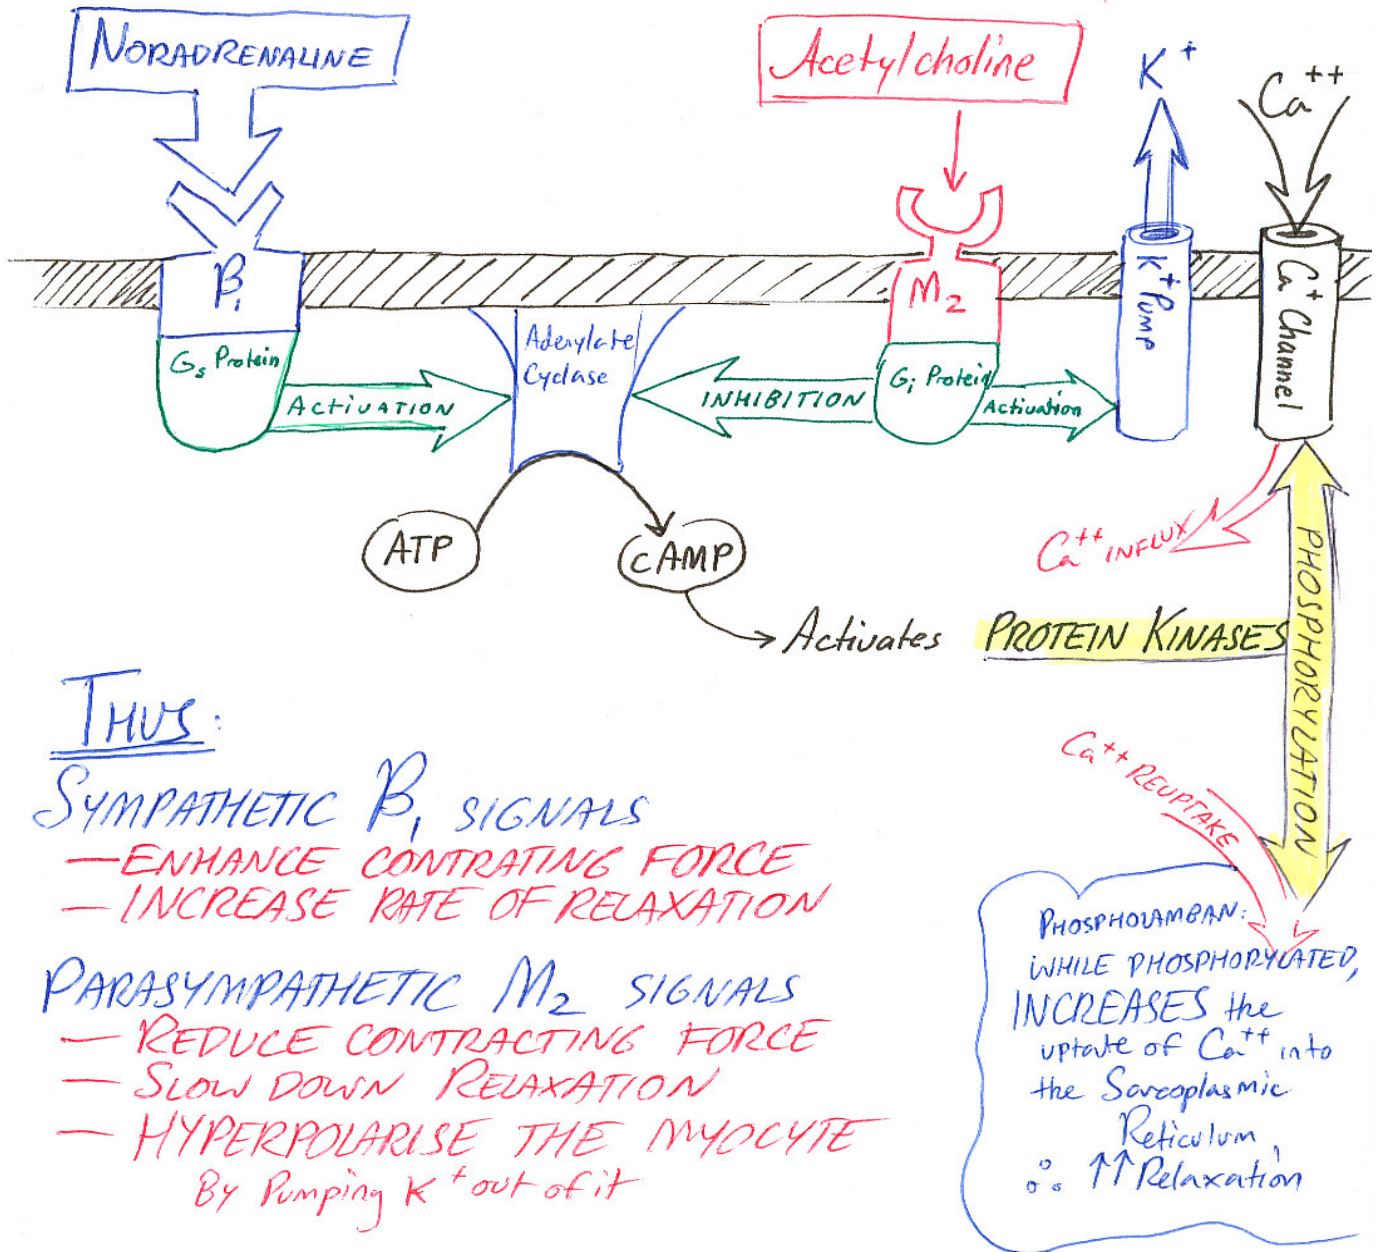 NORADRENALINE
Acetylcholine
K+
Ca++
β1
M2
K+ PUMP
Ca+ Channel
Gs Protein
ACTIVATION
Adenylate
Cyclase
INHIBITION
Gi Protein
Activation
ATP
cAMP
Ca++ INFLUX
Activates PROTEIN KINASES
PHOSPHORYLATION
Ca++ REUPTAKE
THUS:
SYMPATHETIC β1 SIGNALS
— ENHANCE CONTRATING FORCE
— INCREASE RATE OF RELAXATION
PARASYMPATHETIC M2 SIGNALS
— REDUCE CONTRACTING FORCE
— SLOW DOWN RELAXATION
— HYPERPOLARISE THE MYOCYTE
By Pumping K+ out of it
PHOSPHOLAMBAN:
WHILE PHOSPHORYLATED,
INCREASES the
uptate of Ca++ into
the Sarcoplasmic
Reticulum,
∴ ↑↑ Relaxation